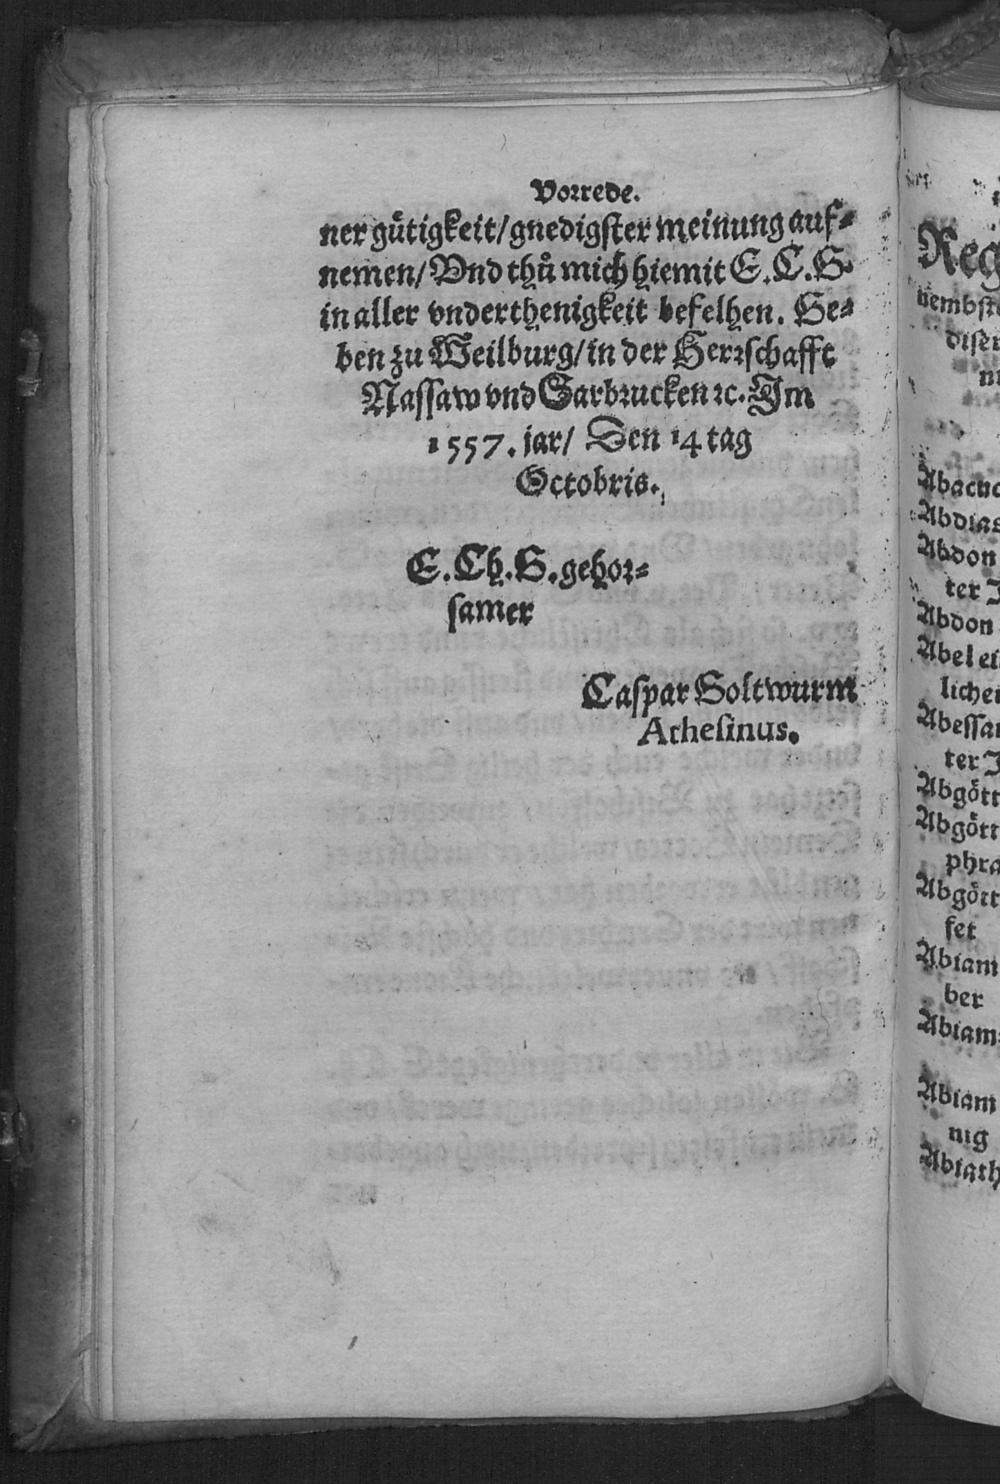 Vorrede.
ner guͤtigkeit/gnedigster meinung auf⸗
nemen/Vnd thuͦ mich hiemit E.C.G.
in aller vnderthenigkeit befelhen. Ge⸗
ben zu Weilburg/in der Herrschafft
Nassaw vnd Sarbrucken ꝛc. Im
1557. jar/ Den 14 tag
Octobris.
E.Ch.G.gehor⸗
samer
Caspar Goltwurm
Athesinus.
Reg
nembst
diser
Abacuc
Abdias
Abdon
ter J
Abdon
Abel ei
lichei
Abessa
ter J
Abgoͤtt
Abgoͤtt
phra
Abgoͤtt
set
Abiam
ber
Abiam
Abiam
nig
Abiath